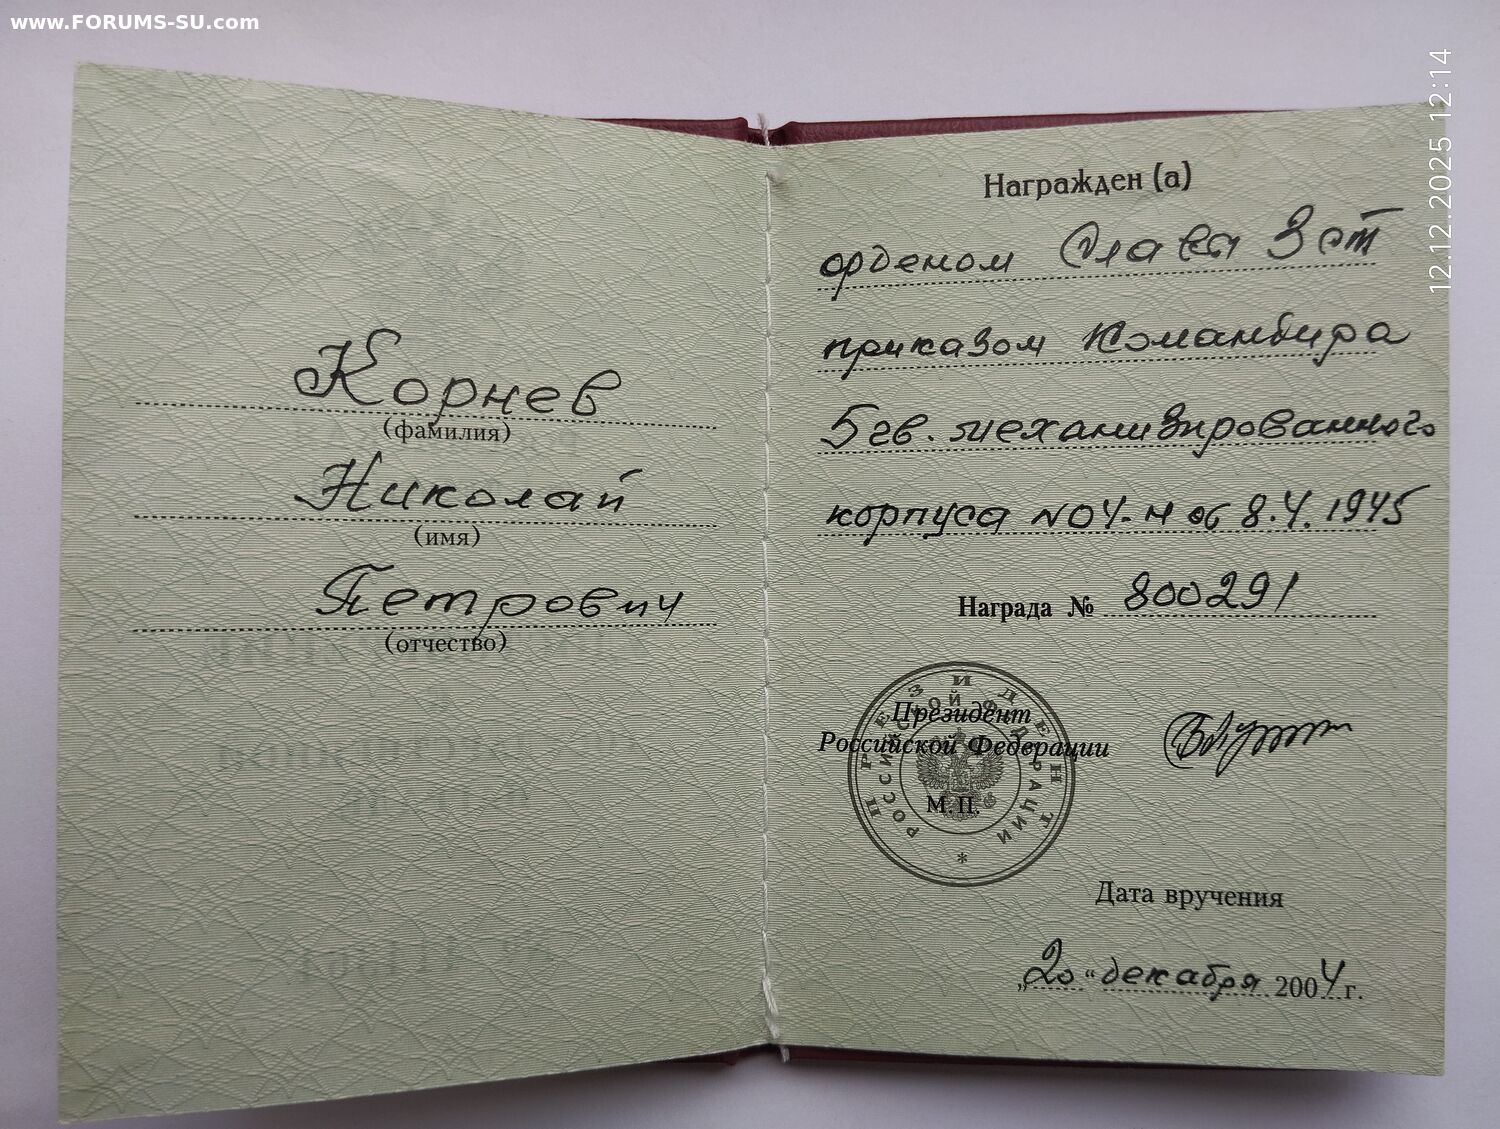 www.FORUMS-SU.com
12.12.2025 12:14
Корнев
(фамилия)
Николай
(имя)
Петрович
(отчество)
Награжден (а)
орденом Славы 3 ст
приказом Командира
5 гв. механизированного
корпуса № 04-н от 8.4.1945
Награда № 800291
Президент
Российской Федерации
М.П.
ПРЕЗИДЕНТ
РОССИЙСКОЙ ФЕДЕРАЦИИ
*
Дата вручения
„20“ декабря 2004 г.